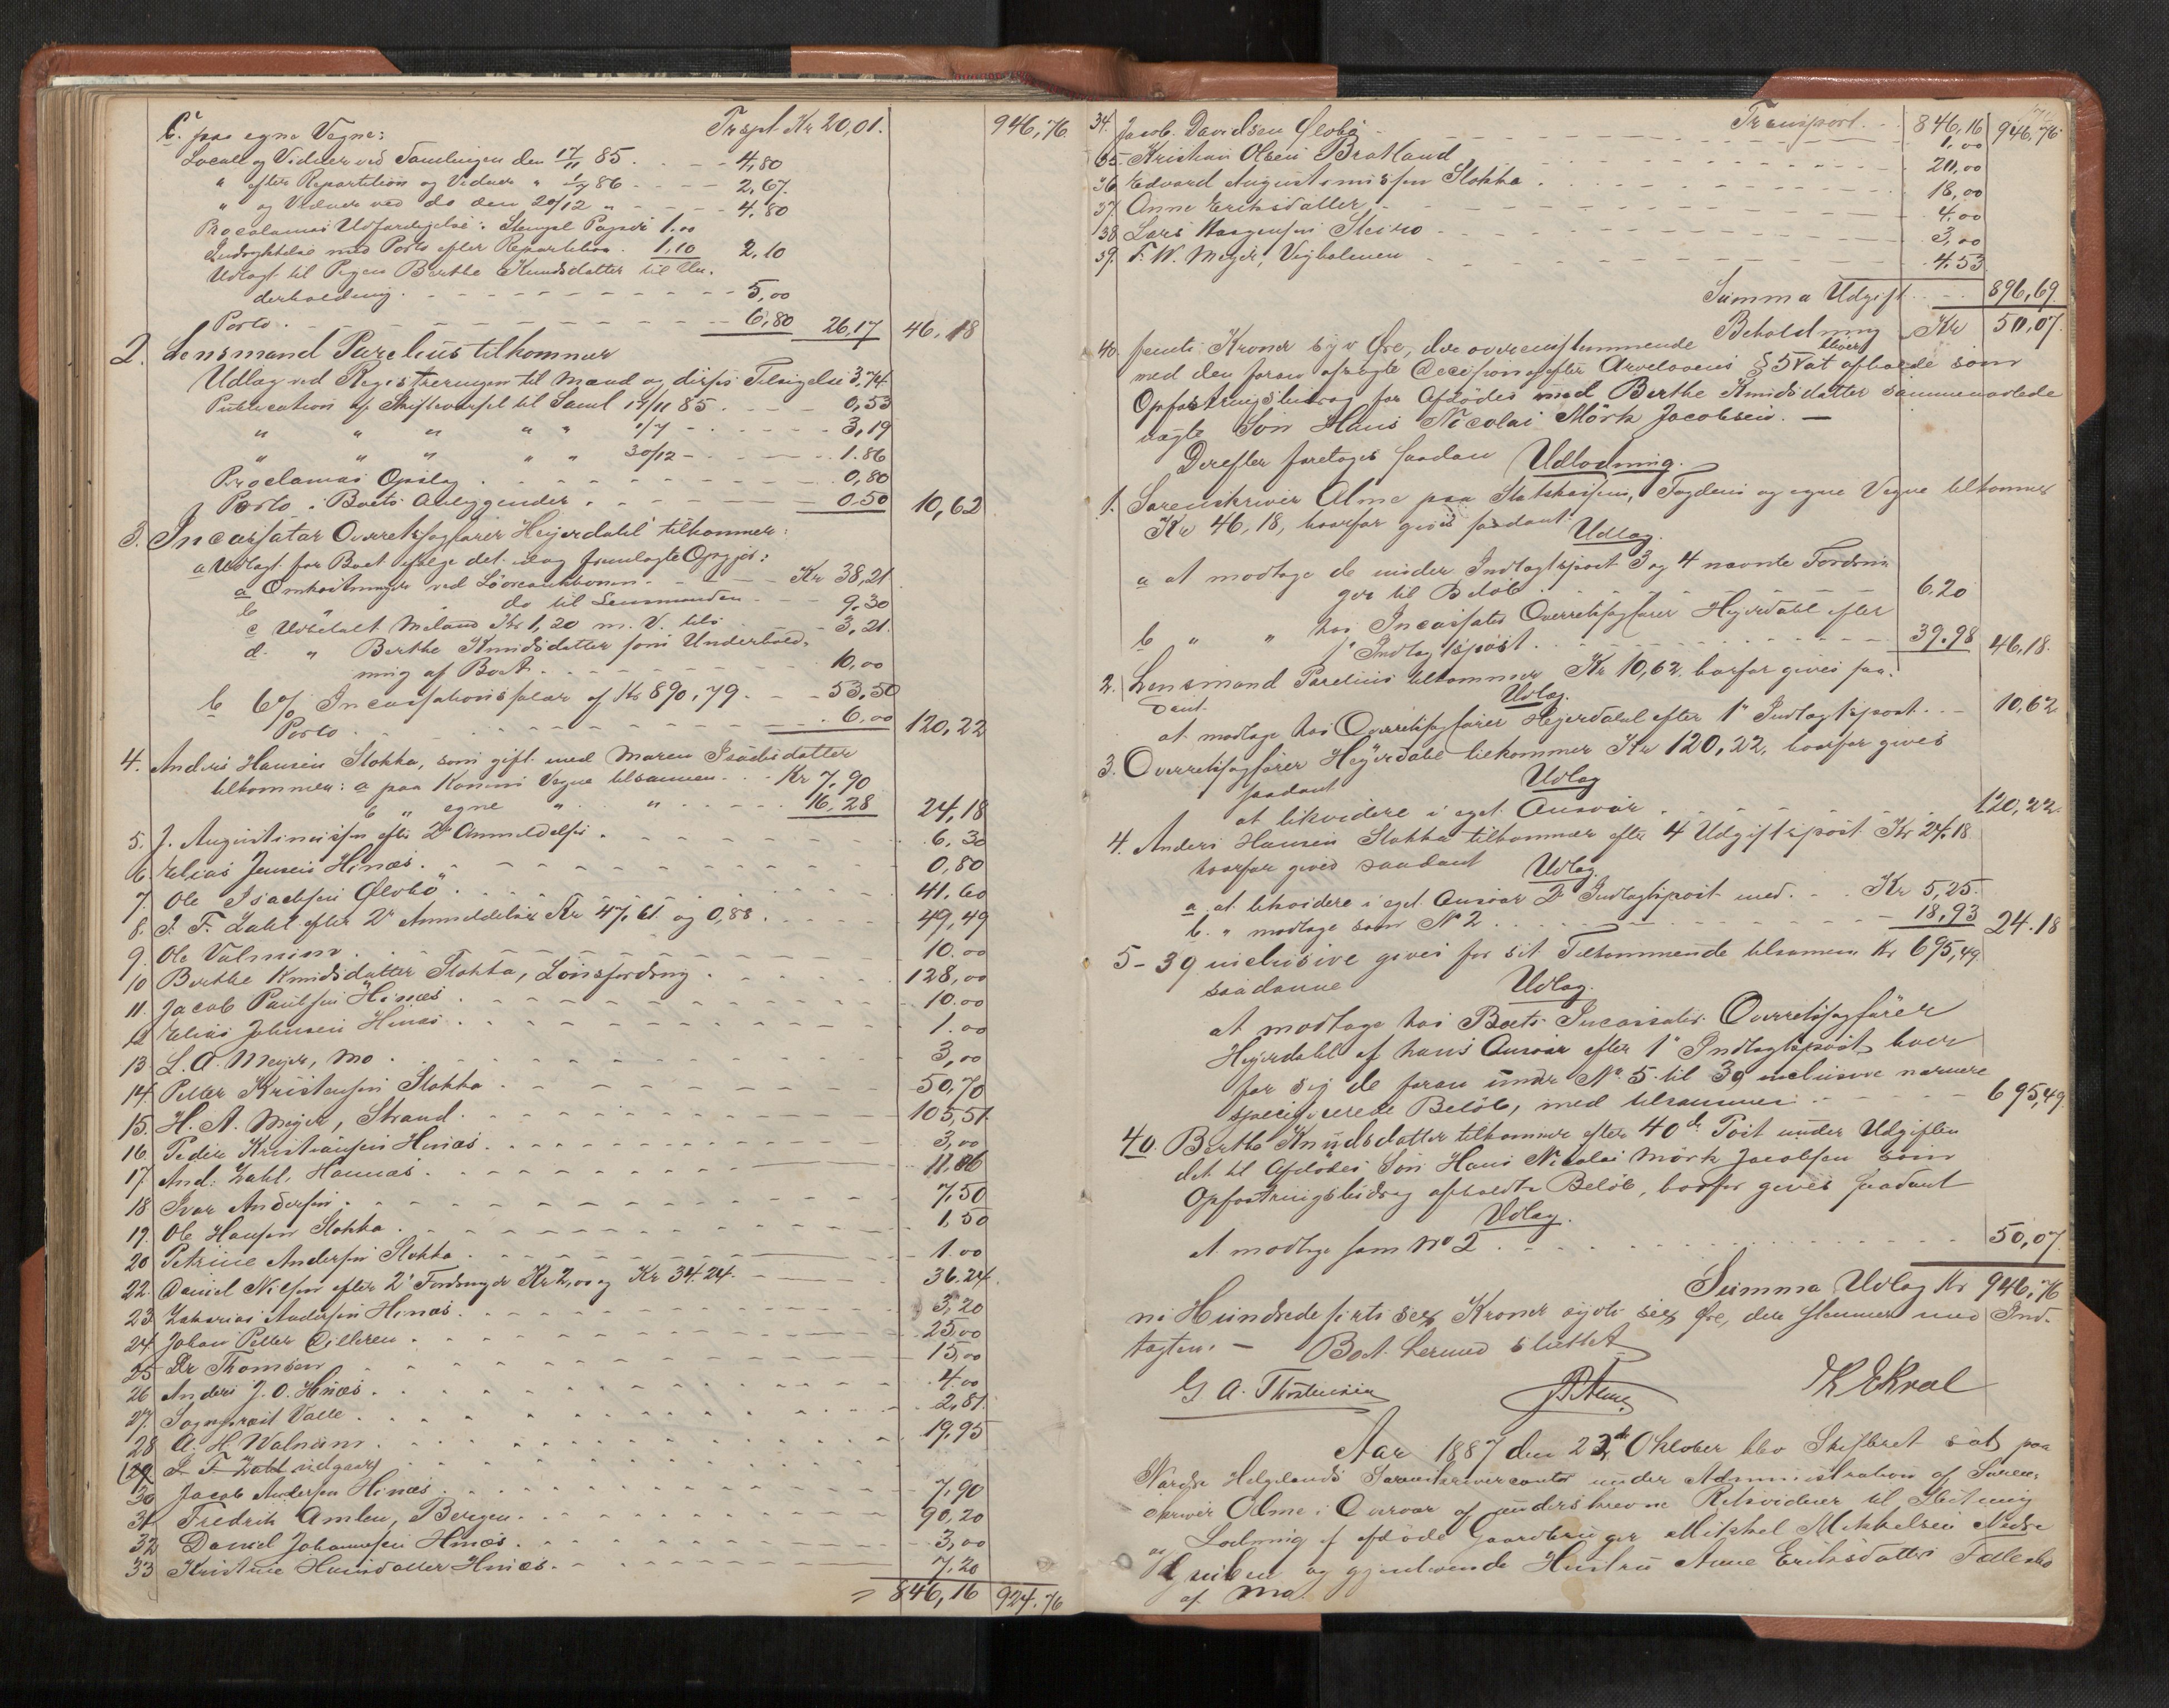 C. paa egne Vegne: Trspt. Kr 20,01. 946,76
Locale og Vidner ved Samlingen den 17/11 85. 4,80
" efter Repartition og Vidner " 1/7 86 2,67.
" og Vidner ved do den 20/12 " 4,80
Proclamas Udfærdigelse: Stempl. Papir 1.00
Indrykkelse med Porto efter Repartition. 1,10 2,10
Udlagt til Pigen Berthe Knudsdatter til Un-
derholdning. 5,00
Porto. 6,80 26,17 46,18
2. Lensmand Parelius tilkommer
Udlag ved Registreringen til Mænd og disses Tilsigelse 3,74
Publication af Skiftevarsel til Saml 17/11 85. 0,53
" " " " " 1/7 - 3,19
" " " " " 30/12 - 1.86
Proclamas Opslag 0,80
Porto i Boets Anliggender. 0.50 10,62
3. Incassator Overretssagfører Heyerdahl tilkommer:
a Udlagt for Boet ifølge det idag fremlagte Opgjør:
a Omkostninger ved Løsøreauktionen. Kr 38,21
b " do til Lensmanden 9.30
c Udbetalt Meland Kr 1,20 m. V. 3,21.
d. " Berthe Knudsdatter som Underhold-
ning af Boet. 10,00
b 6% Incassationssalær af Kr 890,79. 53,50
Porto. 6,00 120,22
4. Anders Hansen Stokka, som gift med Maren Isaksdatter
tilkommer: a paa Konens Vegne tilsammen. Kr 7,90
b " egne " " 16,28 24,18
5. J. Augustinussen efter 2de Anmeldelser. 6,30
6 Elias Jensen Hinæs. 0,80
7. Ole Isachsen Øvebø. 41,60
8. J. F. Zahl efter 2de Anmeldelser Kr 47,61 og 0,88. 49,49
9. Ole Valnum 10.00
10 Berthe Knudsdatter Stokka, Lønsfordring 128,00
11. Jacob Paulsen Hinæs. 10.00
12 Elias Johnsen Hinæs. 1.00
13 L. A. Meyer, Mo. 3,00
14. Petter Kristensen Stokka 50,70
15. H. A. Meyer, Strand. 105,51.
16. Peder Kristiansen Hinæs. 3,00
17 And: Zahl, Hannæs. 11.06
18 Ivar Andersen. 7,50
19. Ole Hansen Stokka. 1,50
20 Petrine Andersen Stokka. 1.00
22. Daniel Nilsen efter 2de Fordringer Kr 2,00 og Kr 34.24. 36.24.
23. Zakarias Andersen Hinæs. 3,20
24 Johan Petter 25,00
25 Dr Thomsen 15,00
26 Anders J. O. Hinæs. 4.00
27. Sogneprest Valle. 2,81.
28 A. H. Walnum. 19,95
(29 J. F. Zahl udgaar)
30 Jacob Andersen Hinæs. 7,90
31 Fredrik Amlen, Bergen. 90,20
32 Daniel Johannesen Hinæs. 3,00
33 Kristine Hansdatter Hinæs. 7,20
= 846,16 924,76
Transport. 846,16 946,76
34. Jacob Davidsen Øvebø 1,00
35. Kristian Olsen Bratland 20,00
36 Edvard Augustinussen Stokka. 18,00
37. Anne Eriksdatter. 4,00
38 Lars Haagensen Steiro 3,00
39. F. W. Meyer, Vigholmen 4.53
Summa Udgift 896,69.
Beholdning Kr 50,07.
40. femti Kroner syv Øre, der overensstemmende bliver
med den foran afsagte Decision efter Arvelovens § 51 at afholde som
Opfostringsbidrag for Afdødes med Berthe Knudsdatter sammenavlede
uægte Søn Hans Nicolai Mörk Jacobsen. -
Derefter foretages saadan Udlodning.
1. Sorenskriver Olme paa Statskassens, Fogdens og egne Vegne tilkommer
Kr 46,18, hvorfor gives saadant
Udlæg.
a at modtage de under Indtægtspost 3 og 4 nævnte Fordrin-
ger til Beløb 6.20
b " " hos Incassator Overretssagfører Heyerdahl efter
1ste Indtægtspost. 39.98 46,18.
2. Lensmand Parelius tilkommer Kr 10,62. hvorfor gives saa-
dant Udlæg.
at modtage hos Overretssagfører Heyerdahl efter 1ste Indtægtspost. 10,62
3. Overretssagfører Heyerdahl tilkommer Kr 120,22, hvorfor gives
saadant Udlæg
at likvidere i eget Ansvar 120,22.
4. Anders Hansen Stokka tilkommer efter 4 Udgiftspost Kr 24.18
hvorfor gives saadant Udlæg
a at likvidere i eget Ansvar 2den Indtægtspost med. Kr 5,25.
b. " modtage som No 2. 18,93 24.18
5-39 inclusive gives for sit Tilkommende tilsammen Kr 695,49
saadanne Udlæg.
at modtage hos Boets Incassator Overretssagfører
Heyerdahl af hans Ansvar efter 1ste Indtægtspost hver
for sig de foran under No. 5 til 39 inclusive nærmere
specificerede Beløb, med tilsammen 695,49
40. Berthe Knudsdatter tilkommer efter 40de Post under Udgiften
det til Afdødes Søn Hans Nicolai Mörk Jacobsen som
Opfostringsbidrag afholdte Beløb, hvorfor gives saadant
Udlæg.
at modtage som No 2 50,07
Summa Udlæg Kr 946,76
ni Hundrede firti sex Kroner sytti sex Øre, der stemmer med Ind-
tægten. - Boet hermed sluttet
G A. Thorstensen J Olme K Ekroll
Aar 1887 den 22de Oktober blev Skifteret sat paa
Nordre Helgelands Sorenskrivercontor under Administration af Soren-
skriver Olme i Overvær af underskrevne Retsvidner til Slutning
og Lodning i afdøde Gaardbruger Mikkel Mikkelsen Nedre
og gjenlevende Hustru Anne Eriksdatters Fællesbo
af Mo.